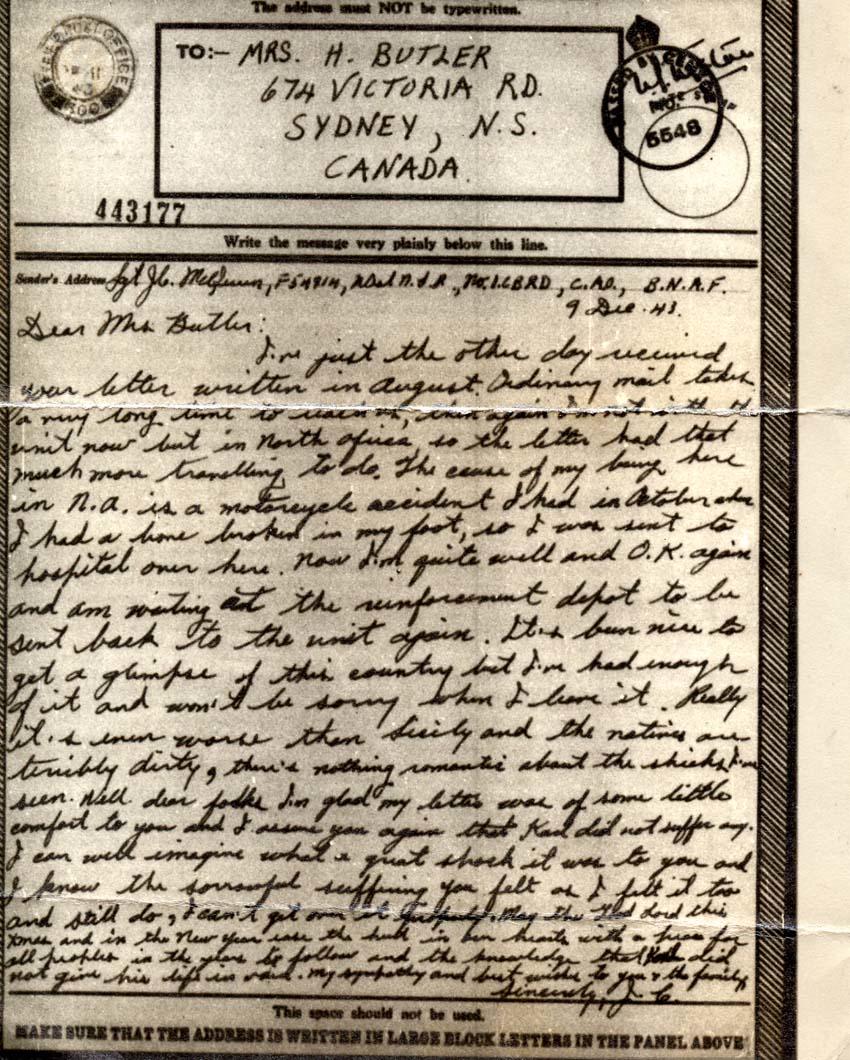 The address must NOT be typewritten.
TO:- MRS. H. BUTLER
674 VICTORIA RD.
SYDNEY, N.S.
CANADA.
FIELD POST OFFICE
300
PASSED BY CENSOR
No.
5548
443177
Write the message very plainly below this line.
Sender's Address Sgt J.C. F54914, N.S.R., No.1 CBRD, C.A.O., B.N.A.F.
9 Dec. 43.
Dear Mrs Butler:
I've just the other day received
your letter written in August. Ordinary mail takes
a very long time to reach us, then again I'm not with the
unit now but in North Africa, so the letter had that
much more travelling to do. The cause of my being here
in N.A. is a motorcycle accident I had in October when
I had a bone broken in my foot, so I was sent to
hospital over here. Now I'm quite well and O.K. again
and am waiting at the reinforcement depot to be
sent back to the unit again. It's been nice to
get a glimpse of this country but I've had enough
of it and won't be sorry when I leave it. Really
it's even worse than Sicily and the natives are
terribly dirty, there's nothing romantic about the shieks I've
seen. Well dear folks I'm glad my letter was of some little
comfort to you and I assure you again that Karl did not suffer any.
I can well imagine what a great shock it was to you and
I know the sorrowful suffering you felt as I felt it too
and still do, I can't get over it. May the Lord this
Xmas and in the New Year ease the hurt in our hearts with a peace for
all peoples in the years to follow and the knowledge that Karl did
not give his life in vain. My sympathy and best wishes to you & the family,
Sincerely, J.C.
This space should not be used.
MAKE SURE THAT THE ADDRESS IS WRITTEN IN LARGE BLOCK LETTERS IN THE PANEL ABOVE